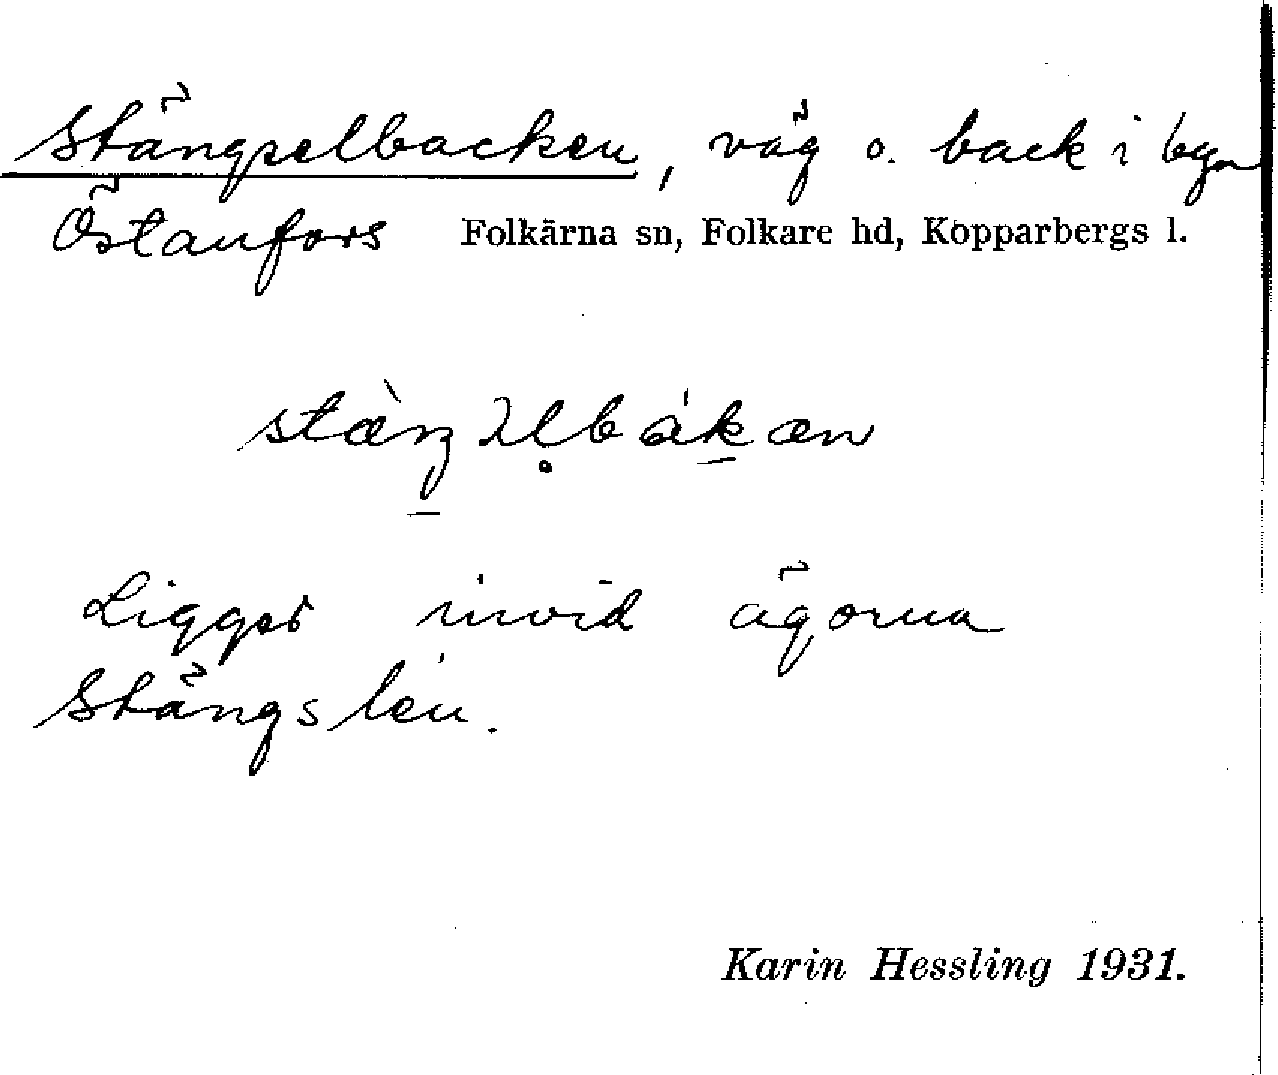 Stängselbacken, väg o. back i byn
Östanfors Folkärna sn, Folkare hd, Kopparbergs l.
Ligger invid ägorna
Stängslen.
Karin Hessling 1931.